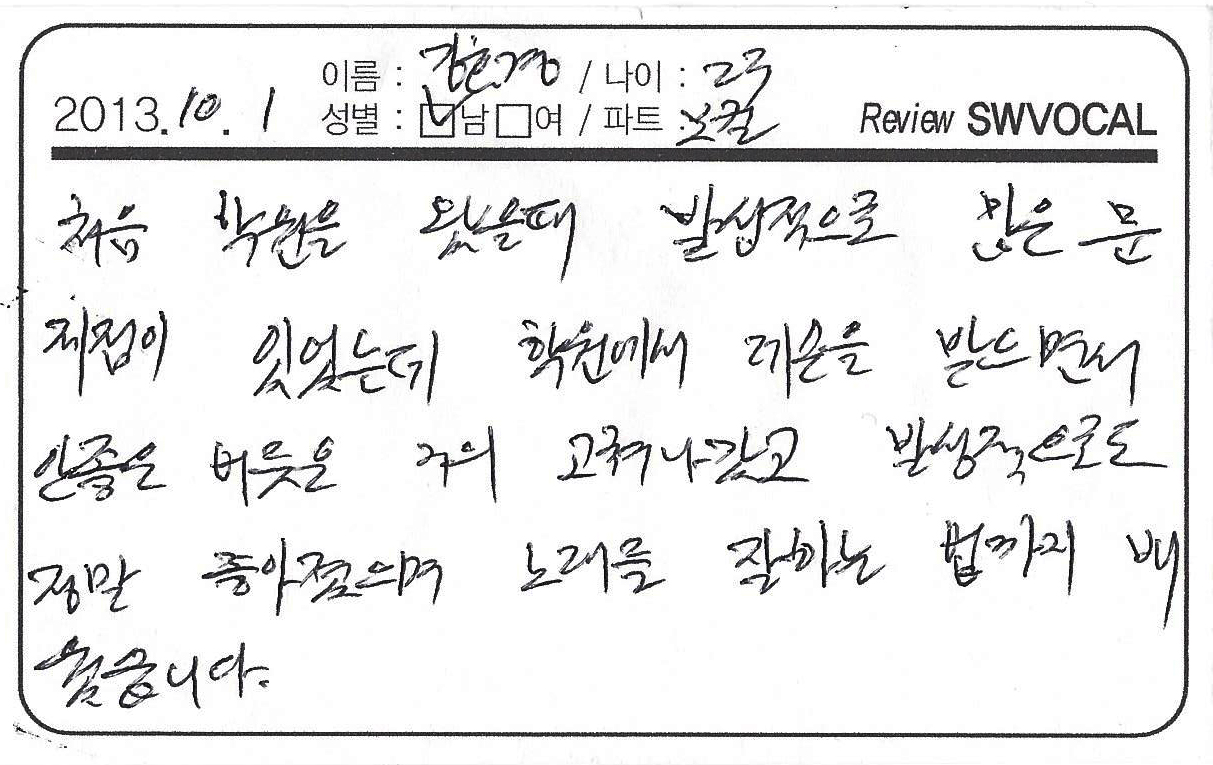 이름 : / 나이 :
2013.10.1 성별 : 남 여 / 파트 : 보컬 Review SWVOCAL
처음 학원을 왔을때 발성적으로 많은 문
제점이 있었는데 학원에서 레슨을 받으면서
안좋은 버릇은 거의 고쳐나갔고 발성적으로도
정말 좋아졌으며 노래를 잘하는 법까지 배
웠습니다.